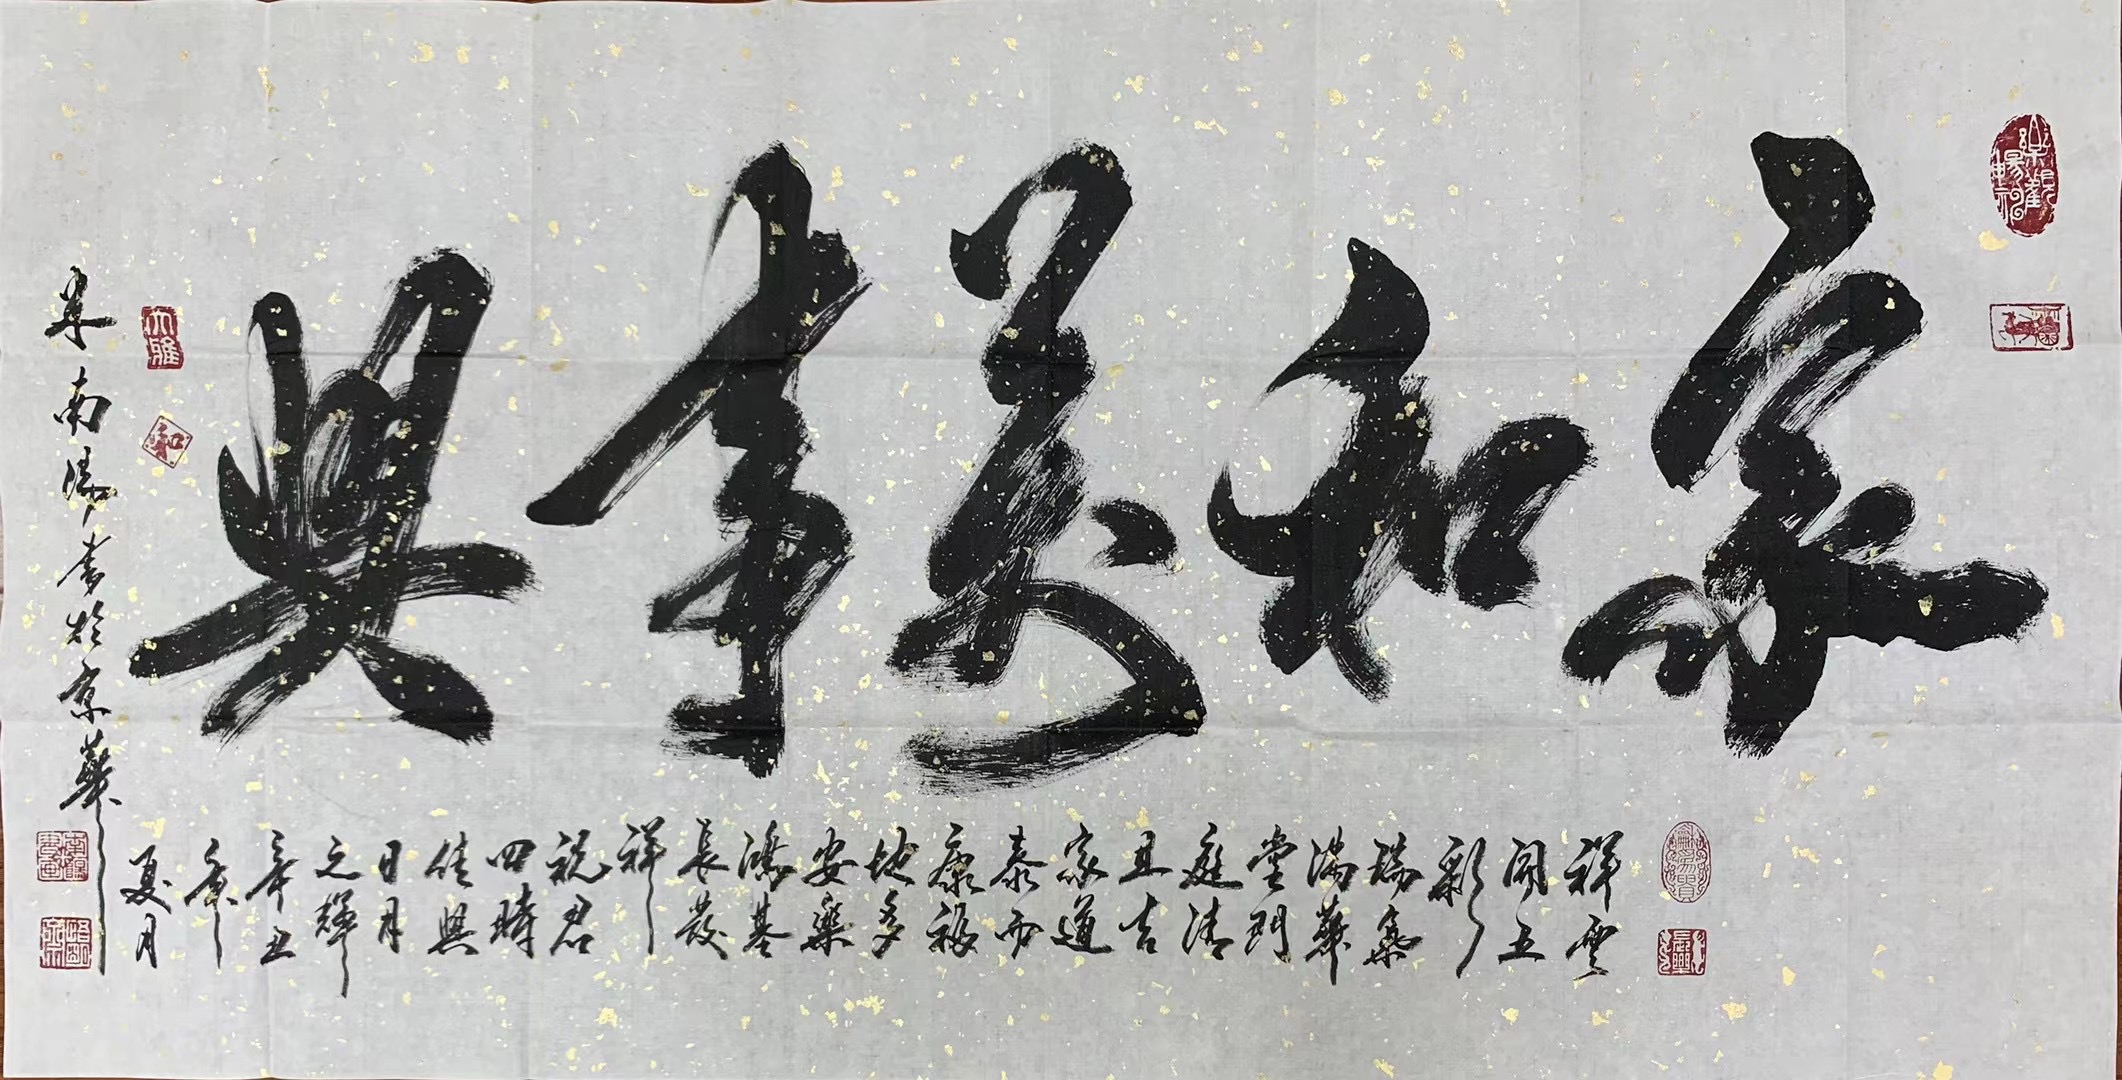 家和萬事興
祥雲
開五
彩
瑞氣
滿華
堂門
庭清
且吉
家道
泰而
康福
地多
安樂
鴻基
長發
祥
祝君
四時
佳興
日月
之輝
辛丑
年
夏月
米南陽書於京華
大雅
和